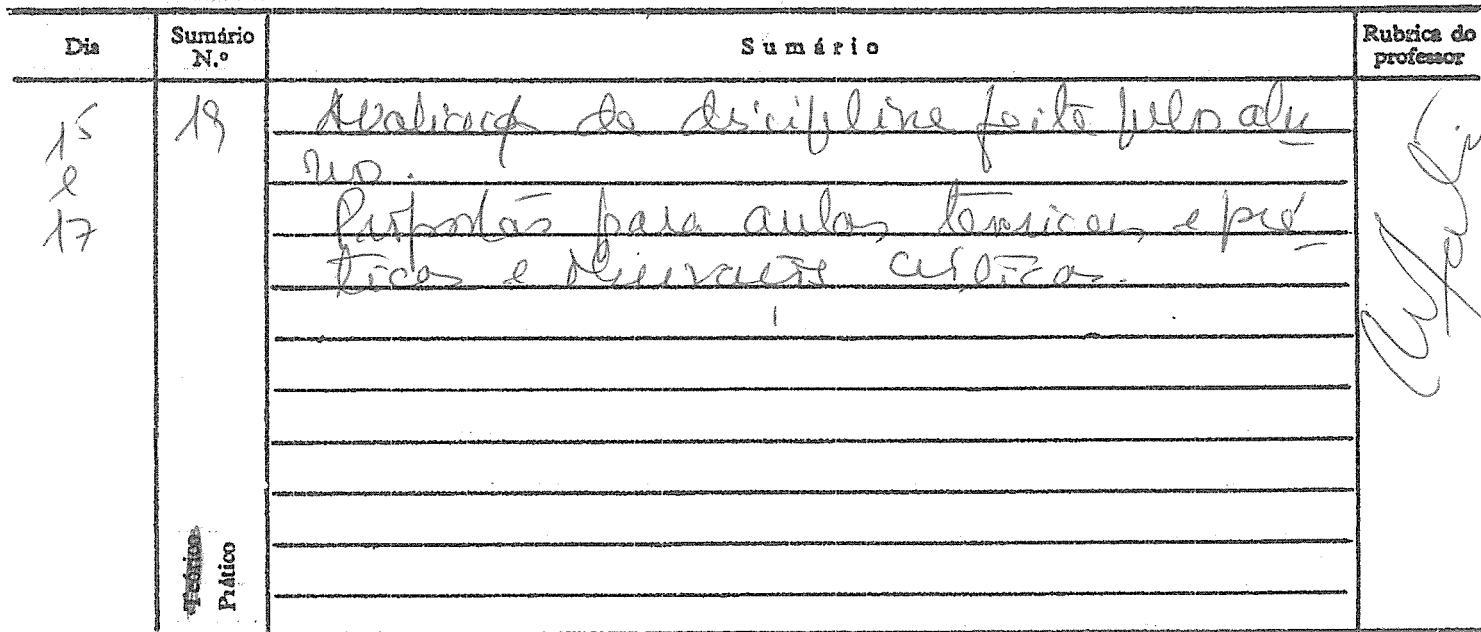 Dia
Sumário N.º
Sumário
Rubrica do professor
15 e 17
19
Avaliação da disciplina feita pelos alu
nos.
Propostas para aulas teóricas e prá
ticas e observações críticas.
Teórico
Prático